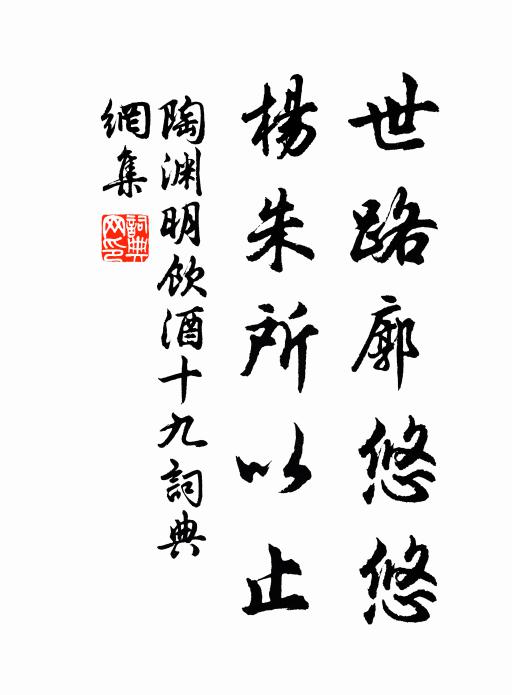 世路廓悠悠
楊朱所以止
陶渊明飲酒十九詞典
網集
詞典网印